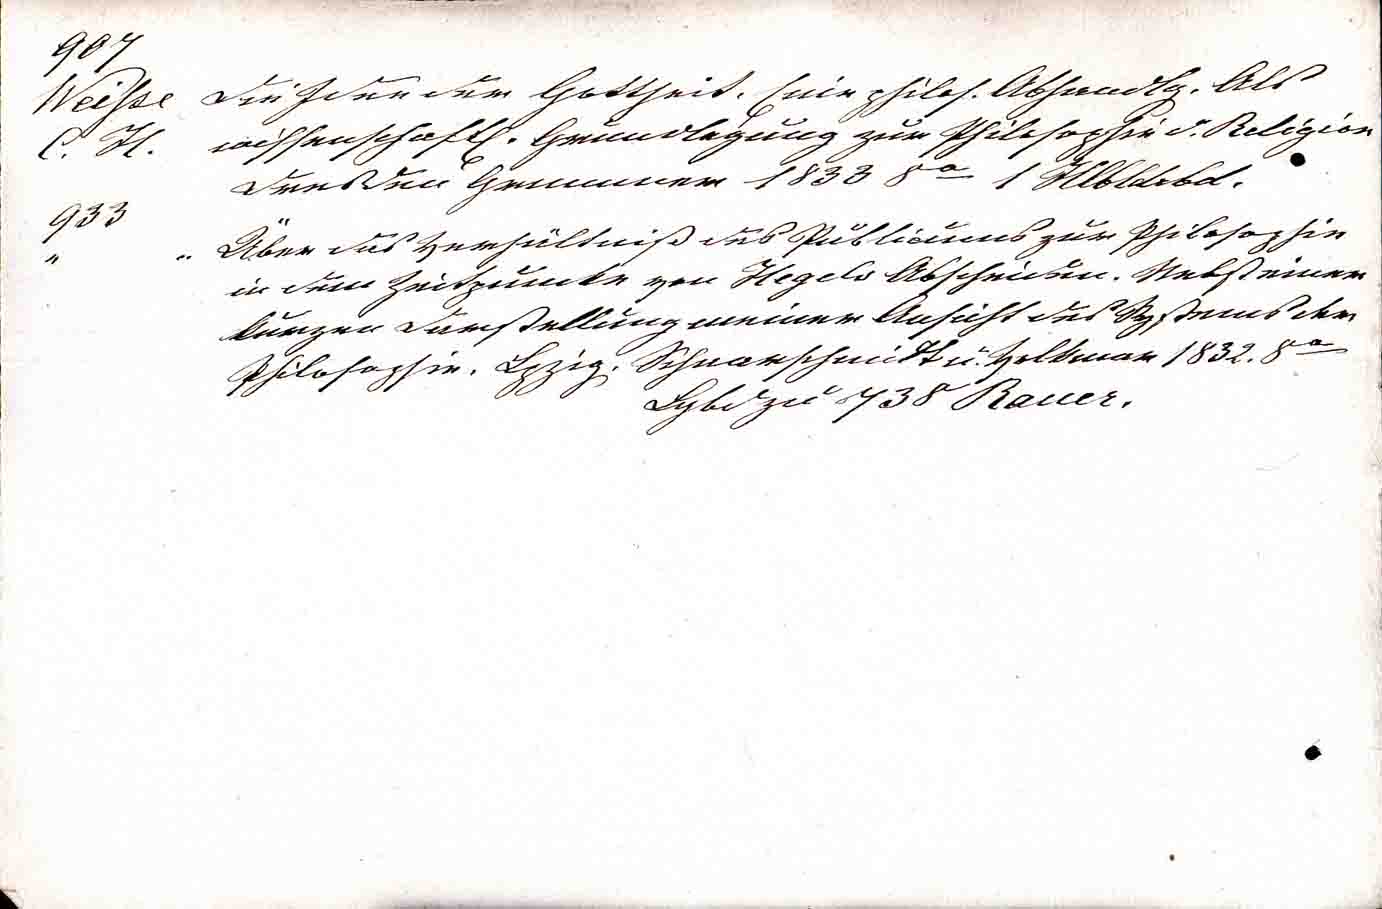 907
Weiße Die Idee der Gottheit. Eine philos. Abhandlg. Als
C. H. wissenschaftl. Grundlegung zur Philosophie d. Religion
Dresden Grimmer 1833 8o 1 Hlbldrbd.
933
" " Über das Verhältniß des Publicums zur Philosophie
in dem Zeitpuncte von Hegels Abscheiden. Nebst einer
kurzen Darstellung meiner Ansicht des Systems der
Philosophie. Lpzig. Schaarschmidt u. Volkmar 1832. 8o
zu 738 Rauer.